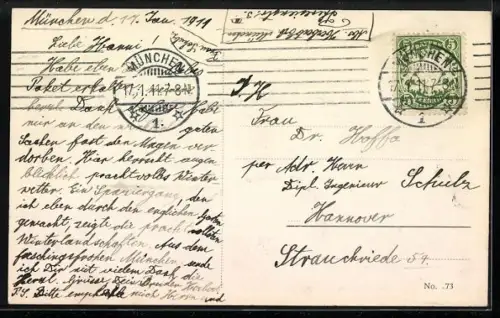 München d. 17. Jan. 1911
Liebe Hanni!
Habe eben
Paket erhalten
Dank
mir an den guten
Sachen fast den Magen ver
dorben. Hier herrscht augen
blicklich prachtvolles Winter
wetter. Ein Spaziergang, den
ich eben durch den englischen Garten
gemacht, zeigte die prachtvollsten
Winterlandschaften. Aus dem
faschingsfrohen München sende
ich Dir mit vielem Dank die
Herzl. Grüsse Dein Bruder
P.S. Bitte empfehle mich Herrn und
MÜNCHEN
17.1.11.7-8N
1.
MÜNCHEN
1
5
Frau
Dr. Hoffa
per Adr. Herrn
Dipl. Ingenieur Schulz
Hannover
Strauchriede 54
No. 73